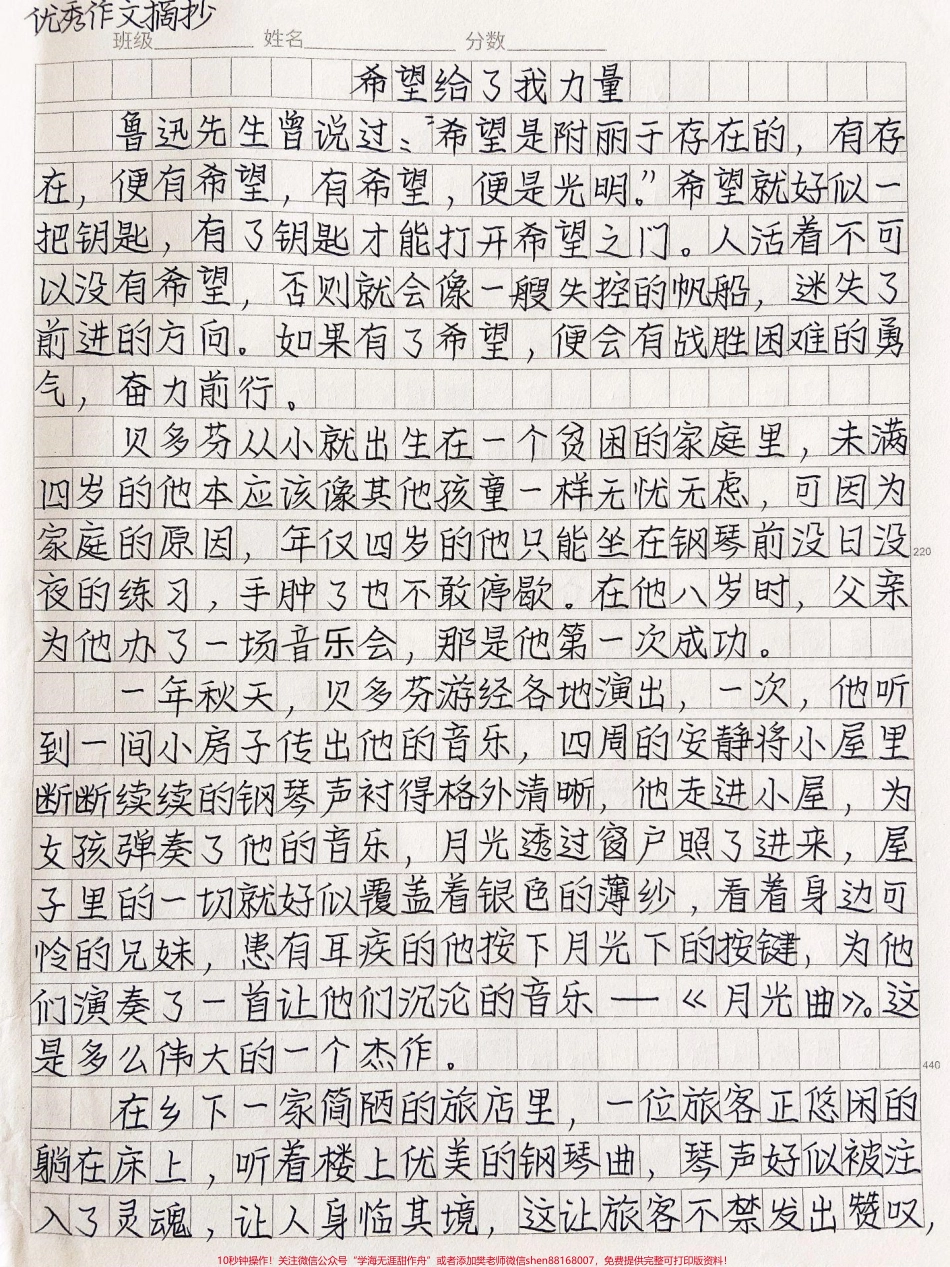 优秀作文摘抄
班级 姓名 分数
希望给了我力量
鲁迅先生曾说过:“希望是附丽于存在的,有存
在,便有希望,有希望,便是光明。”希望就好似一
把钥匙,有了钥匙才能打开希望之门。人活着不可
以没有希望,否则就会像一艘失控的帆船,迷失了
前进的方向。如果有了希望,便会有战胜困难的勇
气,奋力前行。
贝多芬从小就出生在一个贫困的家庭里,未满
四岁的他本应该像其他孩童一样无忧无虑,可因为
家庭的原因,年仅四岁的他只能坐在钢琴前没日没
220
夜的练习,手肿了也不敢停歇。在他八岁时,父亲
为他办了一场音乐会,那是他第一次成功。
一年秋天,贝多芬游经各地演出,一次,他听
到一间小房子传出他的音乐,四周的安静将小屋里
断断续续的钢琴声衬得格外清晰,他走进小屋,为
女孩弹奏了他的音乐,月光透过窗户照了进来,屋
子里的一切就好似覆盖着银色的薄纱,看着身边可
怜的兄妹,患有耳疾的他按下月光下的按键,为他
们演奏了一首让他们沉沦的音乐——《月光曲》。这
是多么伟大的一个杰作。
440
在乡下一家简陋的旅店里,一位旅客正悠闲的
躺在床上,听着楼上优美的钢琴曲,琴声好似被注
入了灵魂,让人身临其境,这让旅客不禁发出赞叹,
10秒钟操作!关注微信公众号“学海无涯甜作舟”或者添加樊老师微信shen88168007,免费提供完整可打印版资料!